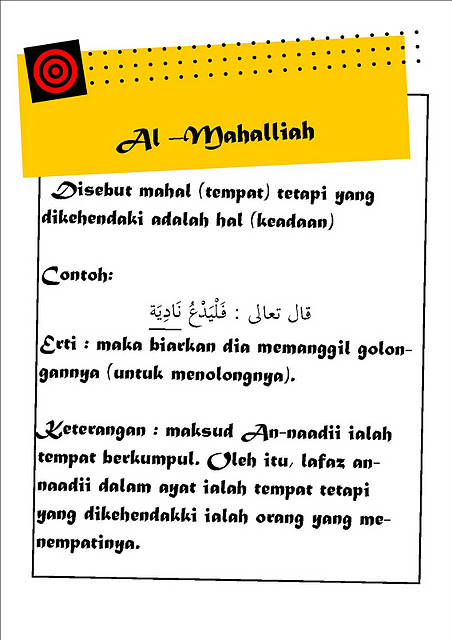 Al –Mahalliah
Disebut mahal (tempat) tetapi yang
dikehendaki adalah hal (keadaan)
Contoh:
قال تعالى : فَلْيَدْعُ نَادِيَة
Erti : maka biarkan dia memanggil golon-
gannya (untuk menolongnya).
Keterangan : maksud An-naadii ialah
tempat berkumpul. Oleh itu, lafaz an-
naadii dalam ayat ialah tempat tetapi
yang dikehendakki ialah orang yang me-
nempatinya.